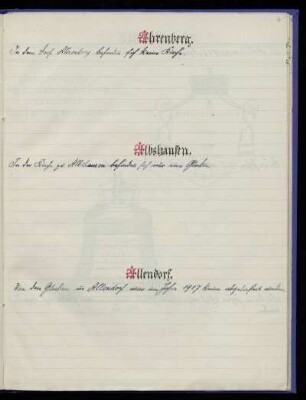 Ahrenberg.
In dem Dorf Ahrenberg befindet sich keine Kirche.
Albshausen.
In der Kirche zu Albshausen befindet sich nur eine Glocke.
Allendorf.
Von den Glocken in Allendorf war im Jahre 1917 keine abgeliefert worden.